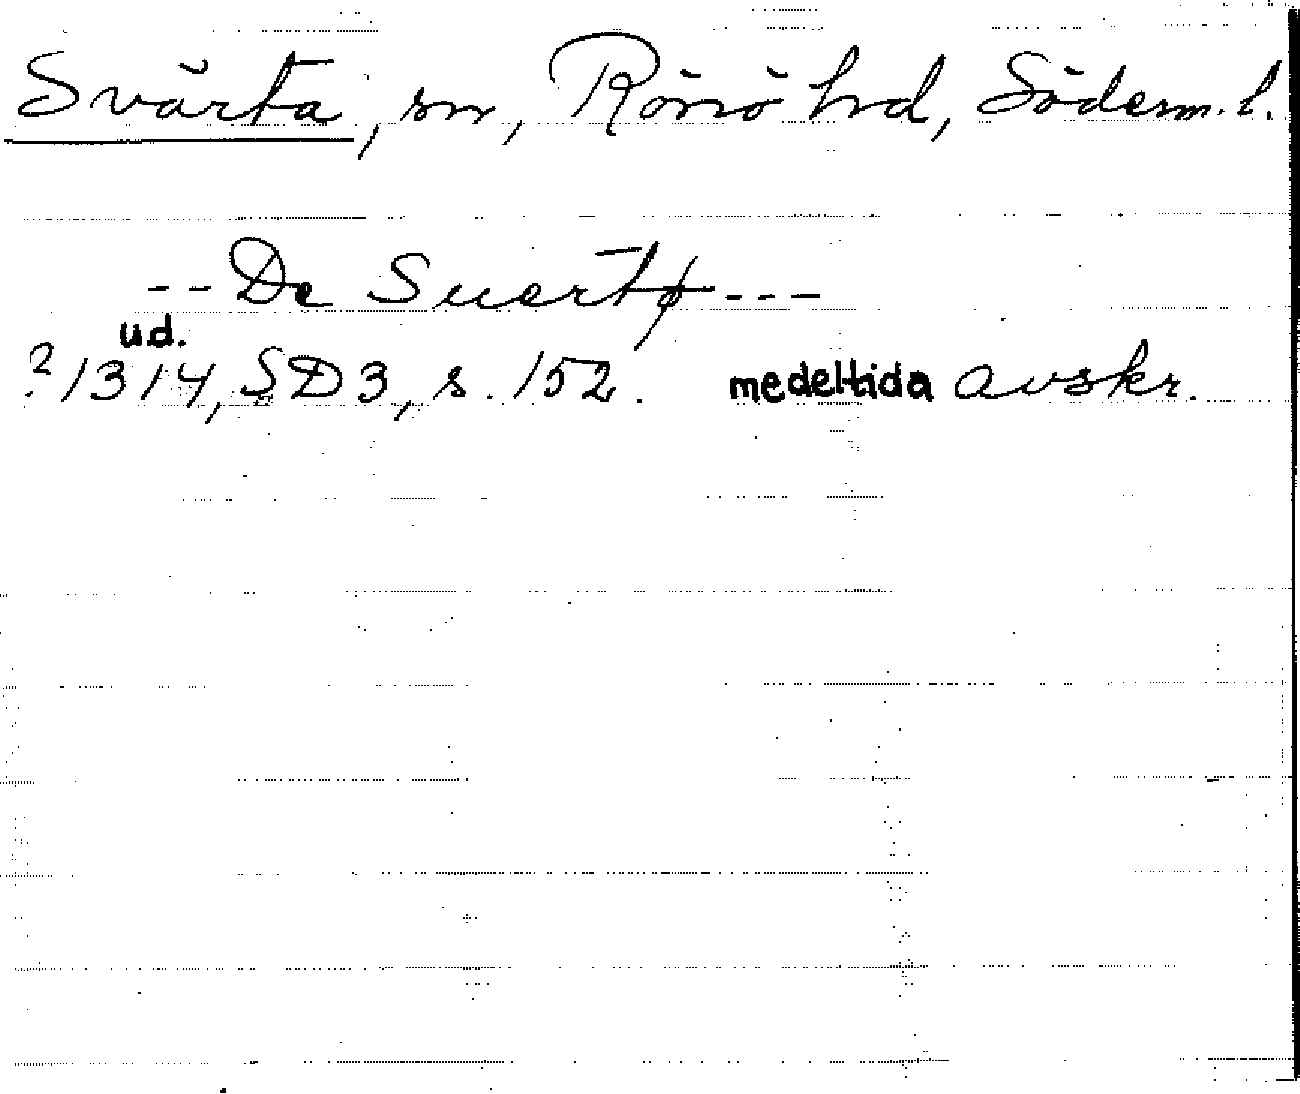 Svärta, sn, Rönö hd, Söderm. l.
-- De Suertø ---
ud.
? 1314, SD 3, s. 152. medeltida avskr.